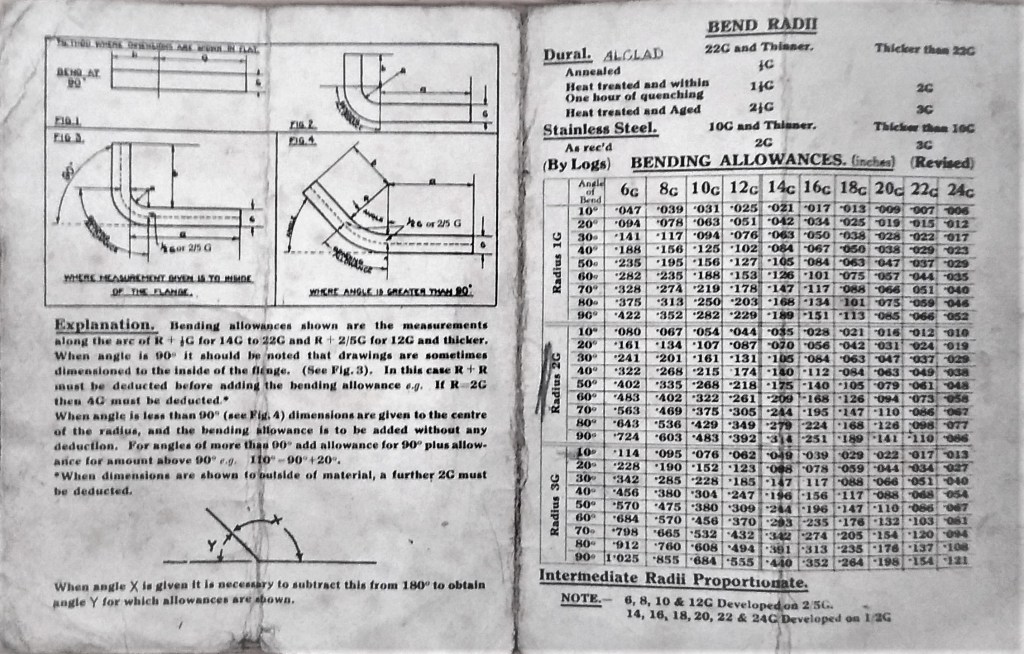 METHOD WHERE DIMENSIONS ARE SHOWN IN FLAT.
b
a
BEND AT 90°
G
FIG. 1.
b
R
a
G
ALLOWANCE
FIG. 2.
FIG 3.
90°
b
a
G
ALLOWANCE
½ G or 2/5 G
WHERE MEASUREMENT GIVEN IS TO INSIDE
OF THE FLANGE.
FIG. 4.
a
ANGLE
ANGLE
½ G or 2/5 G
G
BENDING
ALLOWANCE
WHERE ANGLE IS GREATER THAN 90°
Explanation. Bending allowances shown are the measurements
along the arc of R + ½G for 14G to 22G and R + 2/5G for 12G and thicker.
When angle is 90° it should be noted that drawings are sometimes
dimensioned to the inside of the flange. (See Fig. 3). In this case R + R
must be deducted before adding the bending allowance e.g. If R=2G
then 4G must be deducted.*
When angle is less than 90° (see Fig. 4) dimensions are given to the centre
of the radius, and the bending allowance is to be added without any
deduction. For angles of more than 90° add allowance for 90° plus allow-
ance for amount above 90° e.g. 110°=90°+20°.
*When dimensions are shown to outside of material, a further 2G must
be deducted.
X
Y
When angle X is given it is necessary to subtract this from 180° to obtain
angle Y for which allowances are shown.
BEND RADII
Dural. ALCLAD 22G and Thinner. Thicker than 22G
Annealed ½G
Heat treated and within 1½G 2G
One hour of quenching
Heat treated and Aged 2½G 3G
Stainless Steel. 10G and Thinner. Thicker than 10G
As rec'd 2G 3G
(By Logs) BENDING ALLOWANCES. (inches) (Revised)
Angle of Bend 6G 8G 10G 12G 14G 16G 18G 20G 22G 24G
Radius 1G
10° ·047 ·039 ·031 ·025 ·021 ·017 ·013 ·009 ·007 ·006
20° ·094 ·078 ·063 ·051 ·042 ·034 ·025 ·019 ·015 ·012
30° ·141 ·117 ·094 ·076 ·063 ·050 ·038 ·028 ·022 ·017
40° ·188 ·156 ·125 ·102 ·084 ·067 ·050 ·038 ·029 ·023
50° ·235 ·195 ·156 ·127 ·105 ·084 ·063 ·047 ·037 ·029
60° ·282 ·235 ·188 ·153 ·126 ·101 ·075 ·057 ·044 ·035
70° ·328 ·274 ·219 ·178 ·147 ·117 ·088 ·066 ·051 ·040
80° ·375 ·313 ·250 ·203 ·168 ·134 ·101 ·075 ·059 ·046
90° ·422 ·352 ·282 ·229 ·189 ·151 ·113 ·085 ·066 ·052
Radius 2G
10° ·080 ·067 ·054 ·044 ·035 ·028 ·021 ·016 ·012 ·010
20° ·161 ·134 ·107 ·087 ·070 ·056 ·042 ·031 ·024 ·019
30° ·241 ·201 ·161 ·131 ·105 ·084 ·063 ·047 ·037 ·029
40° ·322 ·268 ·215 ·174 ·140 ·112 ·084 ·063 ·049 ·038
50° ·402 ·335 ·268 ·218 ·175 ·140 ·105 ·079 ·061 ·048
60° ·483 ·402 ·322 ·261 ·209 ·168 ·126 ·094 ·073 ·058
70° ·563 ·469 ·375 ·305 ·244 ·195 ·147 ·110 ·086 ·067
80° ·643 ·536 ·429 ·349 ·279 ·224 ·168 ·126 ·098 ·077
90° ·724 ·603 ·483 ·392 ·314 ·251 ·189 ·141 ·110 ·086
Radius 3G
10° ·114 ·095 ·076 ·062 ·049 ·039 ·029 ·022 ·017 ·013
20° ·228 ·190 ·152 ·123 ·098 ·078 ·059 ·044 ·034 ·027
30° ·342 ·285 ·228 ·185 ·147 ·117 ·088 ·066 ·051 ·040
40° ·456 ·380 ·304 ·247 ·196 ·156 ·117 ·088 ·068 ·054
50° ·570 ·475 ·380 ·309 ·244 ·196 ·147 ·110 ·086 ·067
60° ·684 ·570 ·456 ·370 ·293 ·235 ·176 ·132 ·103 ·081
70° ·798 ·665 ·532 ·432 ·342 ·274 ·205 ·154 ·120 ·094
80° ·912 ·760 ·608 ·494 ·391 ·313 ·235 ·176 ·137 ·108
90° 1·025 ·855 ·684 ·555 ·440 ·352 ·264 ·198 ·154 ·121
Intermediate Radii Proportionate.
NOTE.— 6, 8, 10 & 12G Developed on 2/5G.
14, 16, 18, 20, 22 & 24G Developed on 1/2G